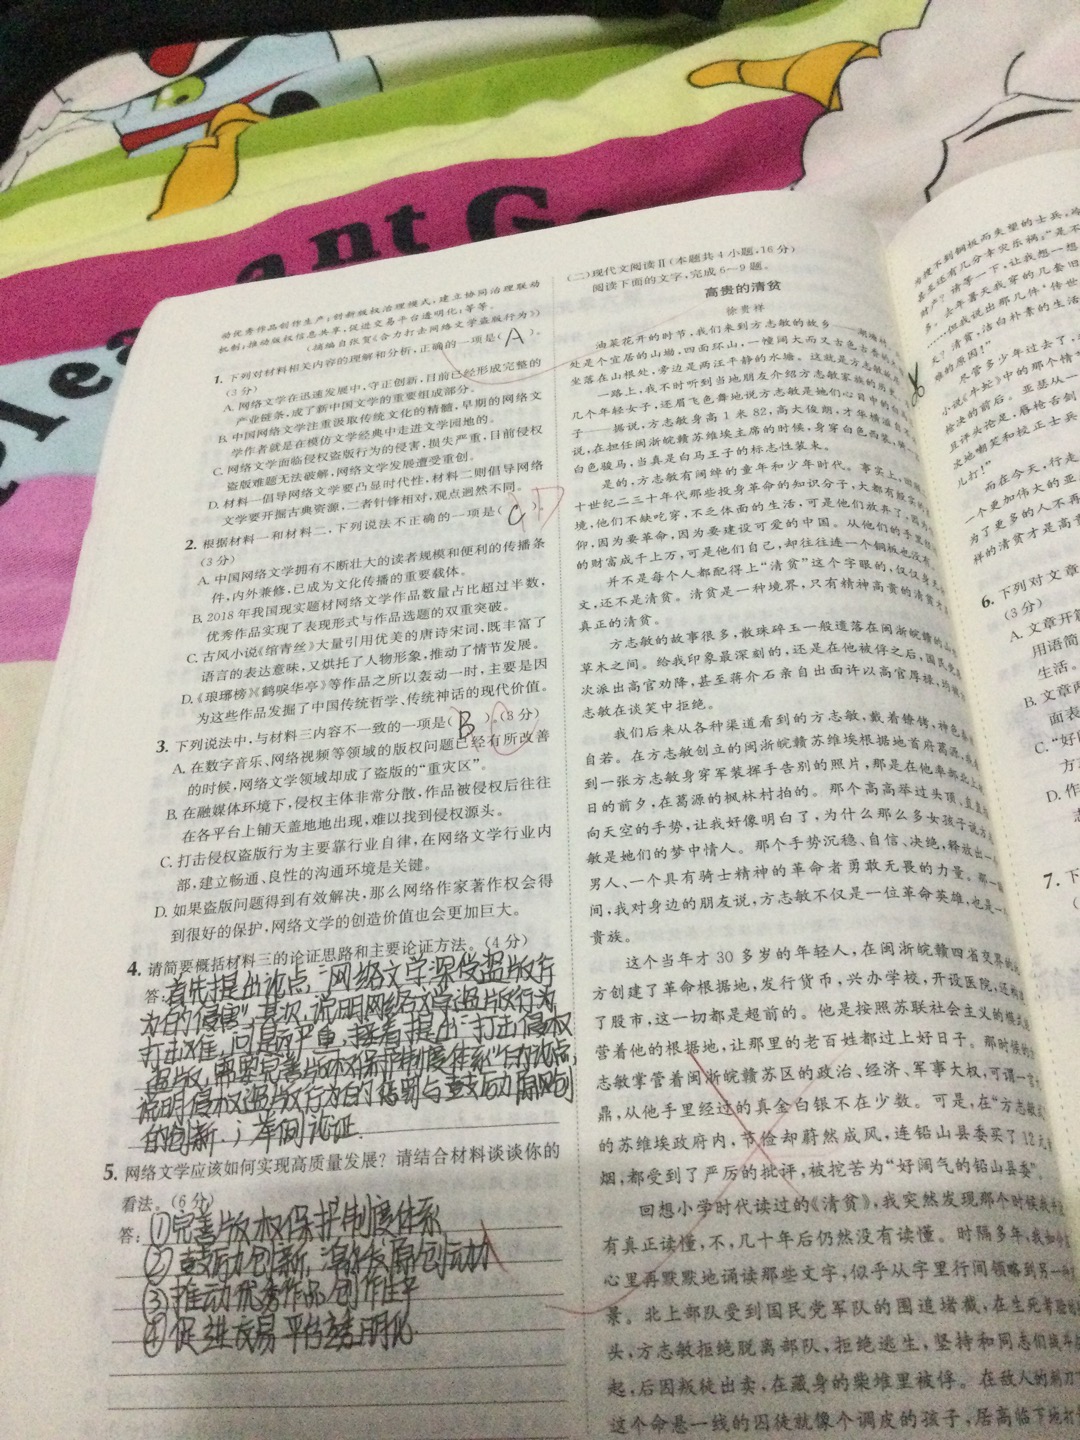 ant G
动优秀作品创作生产;创新版权治理模式,建立协同治理联动
机制;推动版权信息共享,促进交易平台透明化;等等。
(摘编自张贺《合力打击网络文学盗版行为》)
1. 下列对材料相关内容的理解和分析,正确的一项是( A )。
(3分)
A. 网络文学在迅速发展中,守正创新,目前已经形成完整的
产业链条,成了新中国文学的重要组成部分。
B. 中国网络文学注重汲取传统文化的精髓,早期的网络文
学作者就是在模仿文学经典中走进文学园地的。
C. 网络文学面临侵权盗版行为的侵害,损失严重,目前侵权
盗版难题无法破解,网络文学发展遭受重创。
D. 材料一倡导网络文学要凸显时代性,材料二则倡导网络
文学要开掘古典资源,二者针锋相对,观点迥然不同。
2. 根据材料一和材料二,下列说法不正确的一项是( C )。D
(3分)
A. 中国网络文学拥有不断壮大的读者规模和便利的传播条
件,内外兼修,已成为文化传播的重要载体。
B. 2018年我国现实题材网络文学作品数量占比超过半数,
优秀作品实现了表现形式与作品选题的双重突破。
C. 古风小说《绾青丝》大量引用优美的唐诗宋词,既丰富了
语言的表达意味,又烘托了人物形象,推动了情节发展。
D.《琅琊榜》《鹤唳华亭》等作品之所以轰动一时,主要是因
为这些作品发掘了中国传统哲学、传统神话的现代价值。
3. 下列说法中,与材料三内容不一致的一项是( B )。C(3分)
A. 在数字音乐、网络视频等领域的版权问题已经有所改善
的时候,网络文学领域却成了盗版的“重灾区”。
B. 在融媒体环境下,侵权主体非常分散,作品被侵权后往往
在各平台上铺天盖地地出现,难以找到侵权源头。
C. 打击侵权盗版行为主要靠行业自律,在网络文学行业内
部,建立畅通、良性的沟通环境是关键。
D. 如果盗版问题得到有效解决,那么网络作家著作权会得
到很好的保护,网络文学的创造价值也会更加巨大。
4. 请简要概括材料三的论证思路和主要论证方法。(4分)
答:首先提出论点,“网络文学深受盗版行
为的侵害”其次,说明网络文学盗版行为
打击难,问题严重,接着提出“打击侵权
盗版,需要完善版权保护制度体系”的论点,
说明侵权盗版行为的惩罚与鼓励原创
的创新;举例论证.
5. 网络文学应该如何实现高质量发展?请结合材料谈谈你的
看法。(6分)
答:①完善版权保护制度体系
②鼓励创新,激发原创动力
③推动优秀作品创作生
④促进交易平台透明化.
(二)现代文阅读Ⅱ(本题共4小题,16分)
阅读下面的文字,完成6—9题。
高贵的清贫
徐贵祥
油菜花开的时节,我们来到方志敏的故乡
处是个宜居的山坳,四面环山,一幢阔大而又古色古香的
坐落在山根处,旁边是两汪平静的水塘。这就是方志敏
一路上,我不时听到当地朋友介绍方志敏家族的历史,
几个年轻女子,还眉飞色舞地说方志敏是她们心目中的
子——据说,方志敏身高1米82,高大俊朗,才华横溢
说,在担任闽浙皖赣苏维埃主席的时候,身穿白色西装,
白色骏马,当真是白马王子的标志性装束。
是的,方志敏有阔绰的童年和少年时代。事实上,
十世纪二三十年代那些投身革命的知识分子,大都有
境,他们不缺吃穿,不乏体面的生活,可是他们放弃了,因为
仰,因为要革命,因为要建设可爱的中国。从他们的手里
的财富成千上万,可是他们自己,却往往连一个铜板也没有。
并不是每个人都配得上“清贫”这个字眼的,仅仅身无
文,还不是清贫。清贫是一种境界,只有精神高贵的清贫
真正的清贫。
方志敏的故事很多,散珠碎玉一般遗落在闽浙皖赣的山
草木之间。给我印象最深刻的,还是在他被俘之后,国民党
次派出高官劝降,甚至蒋介石亲自出面许以高官厚禄,均被
志敏在谈笑中拒绝。
我们后来从各种渠道看到的方志敏,戴着镣铐,神色
自若。在方志敏创立的闽浙皖赣苏维埃根据地首府葛源,
到一张方志敏身穿军装挥手告别的照片,那是在他率部北上
日的前夕,在葛源的枫林村拍的。那个高高举过头顶、直
向天空的手势,让我好像明白了,为什么那么多女孩子说方
敏是她们的梦中情人。那个手势沉稳、自信、决绝,释放出一
男人、一个具有骑士精神的革命者勇敢无畏的力量。那一
间,我对身边的朋友说,方志敏不仅是一位革命英雄,也是一
贵族。
这个当年才30多岁的年轻人,在闽浙皖赣四省交界的
方创建了革命根据地,发行货币,兴办学校,开设医院,还
了股市,这一切都是超前的。他是按照苏联社会主义的模式
营着他的根据地,让那里的老百姓都过上好日子。那时候的
志敏掌管着闽浙皖赣苏区的政治、经济、军事大权,可谓一言
鼎,从他手里经过的真金白银不在少数。可是,在“方志敏
的苏维埃政府内,节俭却蔚然成风,连铅山县委买了12元
烟,都受到了严厉的批评,被挖苦为“好阔气的铅山县委”。
回想小学时代读过的《清贫》,我突然发现那个时候我
有真正读懂,不,几十年后仍然没有读懂。时隔多年,我
心里再默默地诵读那些文字,似乎从字里行间领略到另一
景。北上部队受到国民党军队的围追堵截,在生死
头,方志敏拒绝脱离部队,拒绝逃生,坚持和同志们战斗
起,后因叛徒出卖,在藏身的柴堆里被俘。在敌人的
这个命悬一线的囚徒就像个调皮的孩子,居高临下地
为搜不到铜板而失望的士兵,
甚至还有几分幸灾乐祸:“是不
财产?请等一下,让我想一想
多。去年暑天我穿的几套旧
……但我说出那几件‘传世
天?清贫,洁白朴素的生活
难的原因!”
尽管多少年过去了,
小说《牛虻》中的那个情
枪决的前后。亚瑟从一
且评头论足,唇枪舌剑
次地嘲笑和校正士兵
儿打!”
而在今天,行走
一个更加伟大的亚
为了更多的人不再
样的清贫才是高
6. 下列对文章
(3分)
A. 文章开篇
用语简
生活。
B. 文章
面表
C. “好
方
D. 作
志
7. 下